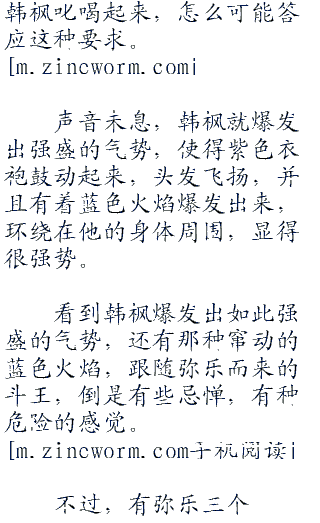 韩枫叱喝起来，怎么可能答
应这种要求。
[m.zincworm.com|
声音未息，韩枫就爆发
出强盛的气势，使得紫色衣
袍鼓动起来，头发飞扬，并
且有着蓝色火焰爆发出来，
环绕在他的身体周围，显得
很强势。
看到韩枫爆发出如此强
盛的气势，还有那种窜动的
蓝色火焰，跟随弥乐而来的
斗王，倒是有些忌惮，有种
危险的感觉。
[m.zincworm.com手机阅读|
不过，有弥乐三个